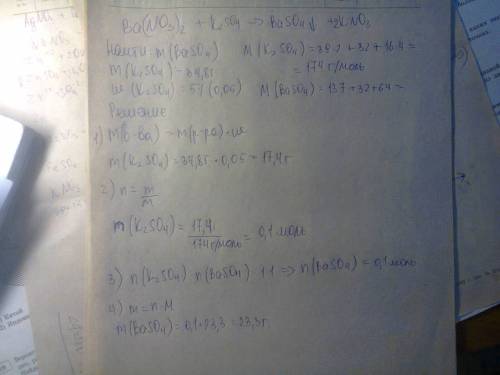 Ba(NO3)2 + K2SO4 => BaSO4↓ + 2KNO3
Найти: m(BaSO4) M(K2SO4) = 39·2+32+16·4 =
m(K2SO4) = 34,8г = 174 г/моль
ω(K2SO4) = 5% (0,05) M(BaSO4) = 137+32+64 =
Решение
1) m(в-ва) = m(р-ра)·ω
m(K2SO4) = 34,8г·0,05 = 17,4г
2) n = m/m
m(K2SO4) = 17,4г/174г/моль = 0,1 моль
3) n(K2SO4) n(BaSO4) 1:1 => n(BaSO4) = 0,1 моль
4) m = n·M
m(BaSO4) = 0,1·23,3 = 23,3г